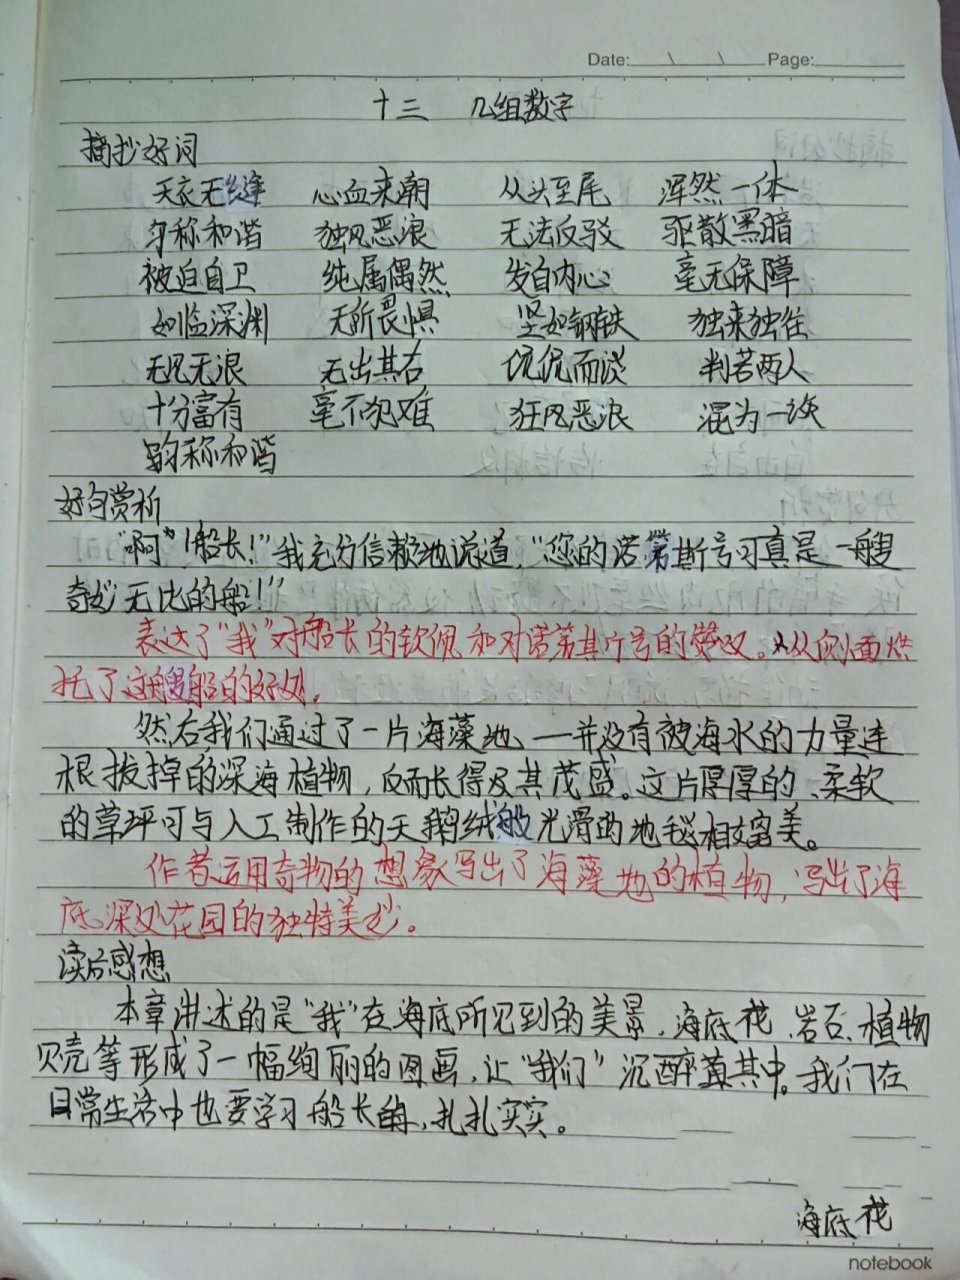 Date: \ \ Page:
十三 几组数字
摘抄好词
天衣无缝 心血来潮 从头至尾 浑然一体
匀称和谐 独风恶浪 无法反驳 驱散黑暗
被迫自卫 纯属偶然 发自内心 毫无保障
如临深渊 无所畏惧 坚如钢铁 独来独往
无风无浪 无出其右 侃侃而谈 判若两人
十分富有 毫不犯难 狂风恶浪 混为一谈
韵称和谐
好句赏析
"啊"!船长!"我充分信赖地说道,"您的诺第斯号可真是一艘
奇妙无比的船!"
表达了"我"对船长的钦佩和对诺第其斤号的赞叹。从侧面烘
托了这艘船的好处。
然后我们通过了一片海藻地、一并没有被海水的力量连
根拔掉的深海植物,反而长得及其茂盛。这片厚厚的、柔软
的草坪可与人工制作的天鹅绒般光滑的地毯相媲美。
作者运用奇物的想象写出了海藻地的植物,写出了海
底深处花园的独特美妙。
读后感想
本章讲述的是"我"在海底所见到的美景,海底花、岩石、植物
贝壳等形成了一幅绚丽的图画,让"我们"沉醉其中。我们在
日常生活中也要学习船长的,扎扎实实。
海底花
notebook